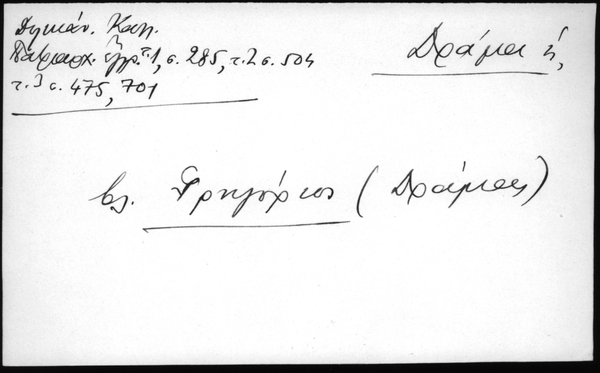 Δελικάν. Καλλ.
Πατριαρχ. ἔγγρ. τ.1, σ. 285, τ.2 σ. 504
τ.3 σ. 475, 701
Δράμα ἡ,
βλ. Γρηγόριος (Δράμας)